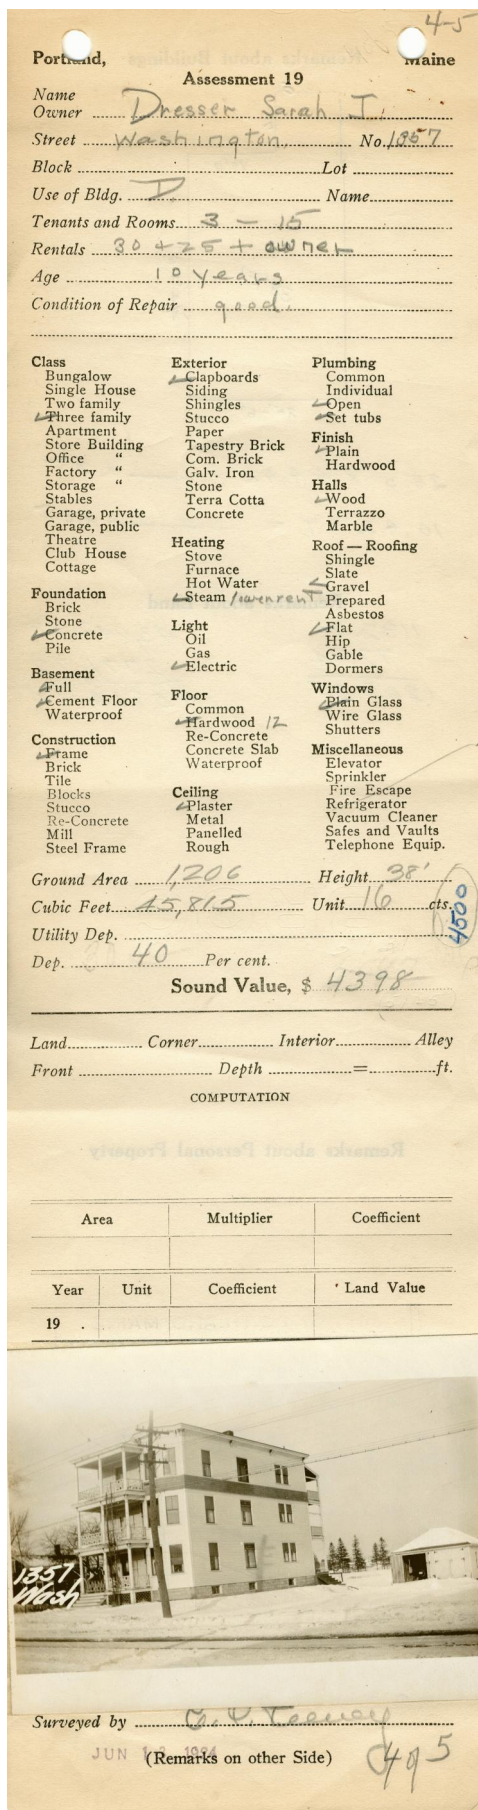 4-5
Portland, Maine
Assessment 19
Name
Owner Dresser Sarah I.
Street Washington. No. 1357
Block Lot
Use of Bldg. D. Name
Tenants and Rooms 3 - 15
Rentals 30 + 25 + owner
Age 10 years
Condition of Repair good.
Class
Bungalow
Single House
Two family
Three family
Apartment
Store Building
Office "
Factory "
Storage "
Stables
Garage, private
Garage, public
Theatre
Club House
Cottage
Foundation
Brick
Stone
Concrete
Pile
Basement
Full
Cement Floor
Waterproof
Construction
Frame
Brick
Tile
Blocks
Stucco
Re-Concrete
Mill
Steel Frame
Exterior
Clapboards
Siding
Shingles
Stucco
Paper
Tapestry Brick
Com. Brick
Galv. Iron
Stone
Terra Cotta
Concrete
Heating
Stove
Furnace
Hot Water
Steam
Light
Oil
Gas
Electric
Floor
Common
Hardwood 12
Re-Concrete
Concrete Slab
Waterproof
Ceiling
Plaster
Metal
Panelled
Rough
Plumbing
Common
Individual
Open
Set tubs
Finish
Plain
Hardwood
Halls
Wood
Terrazzo
Marble
Roof — Roofing
Shingle
Slate
Gravel
Prepared
Asbestos
Flat
Hip
Gable
Dormers
Windows
Plain Glass
Wire Glass
Shutters
Miscellaneous
Elevator
Sprinkler
Fire Escape
Refrigerator
Vacuum Cleaner
Safes and Vaults
Telephone Equip.
Ground Area 1,206 Height 38'
Cubic Feet 45,815 Unit 16 cts.
4500
Utility Dep.
Dep. 40 Per cent.
Sound Value, $ 4398
Land Corner Interior Alley
Front Depth = ft.
COMPUTATION
Remarks about Personal Property
Area Multiplier Coefficient
Year Unit Coefficient Land Value
19 .
1357
Wash
Surveyed by
JUN 1924
(Remarks on other Side)
495